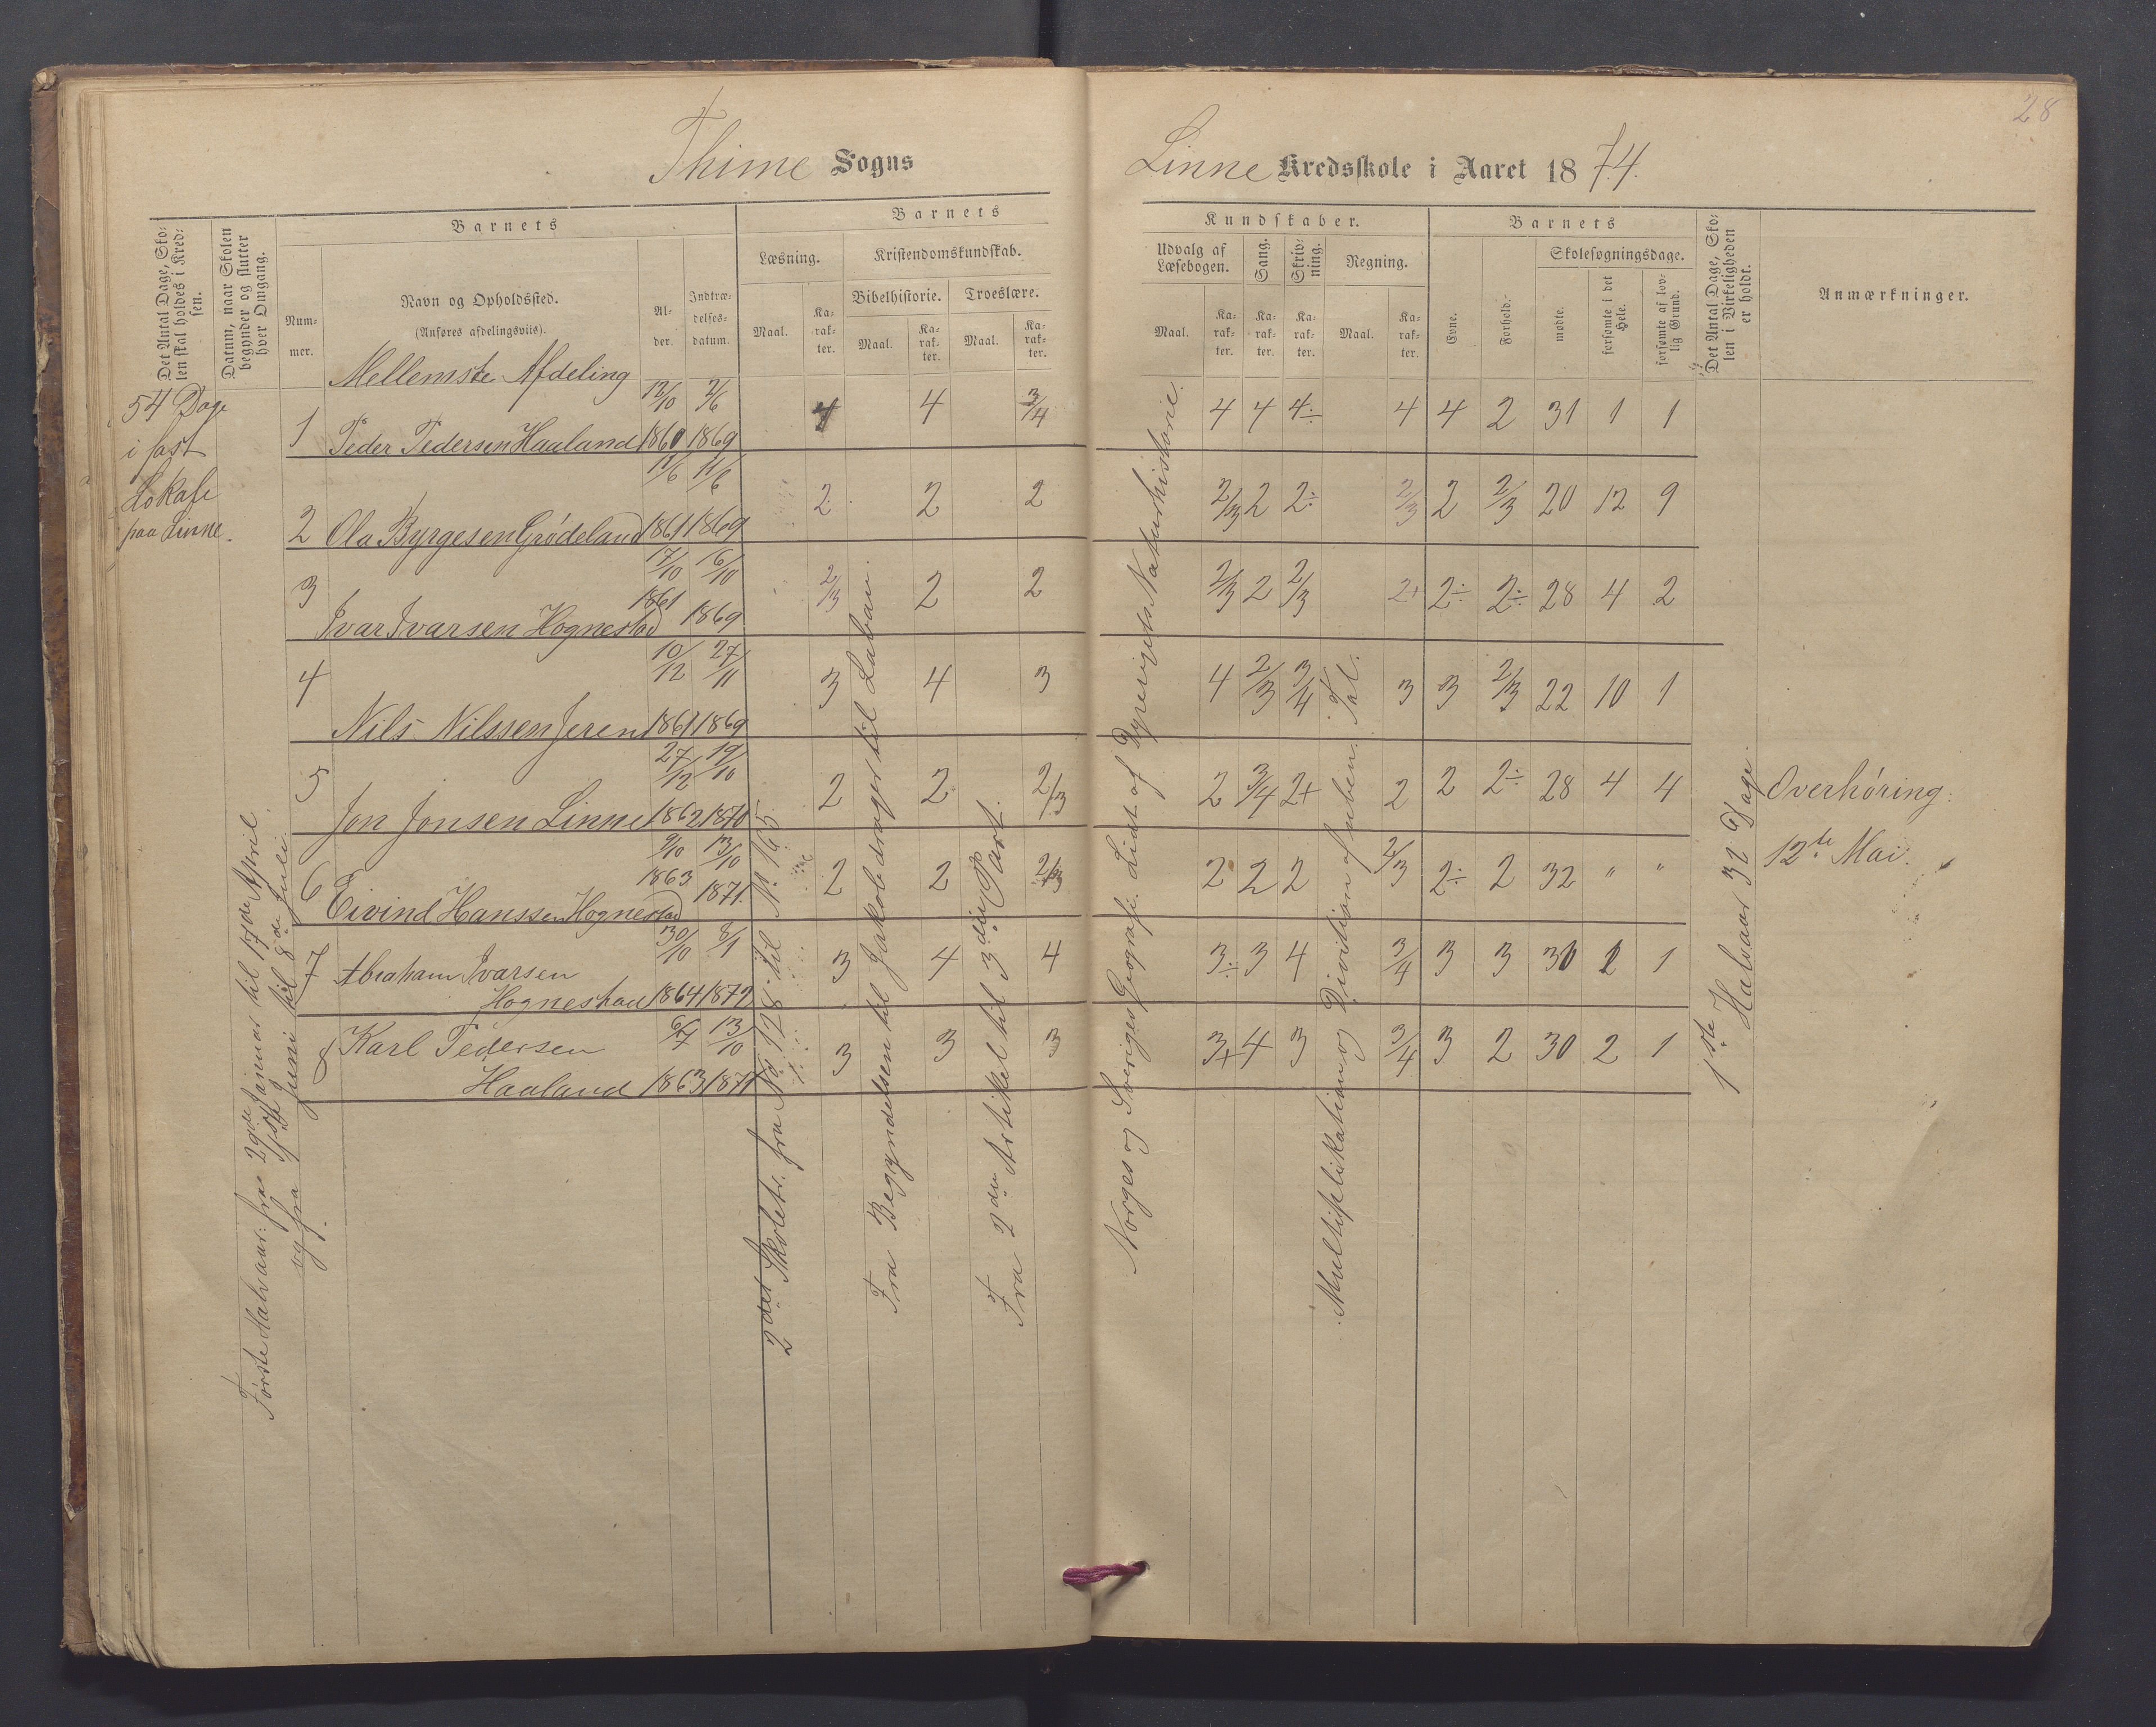 28
Thime Sogns
Linne Kredsskole i Aaret 1874.
Det Antal Dage, Sko-
len skal holdes i Kred-
sen.
Datum, naar Skolen
begynder og slutter
hver Omgang.
Barnets
Num-
mer.
Navn og Opholdssted.
(Anføres afdelingsviis).
Al-
der.
Indtræ-
delses-
datum.
Barnets
Læsning.
Maal.
Ka-
rak-
ter.
Kristendomskundskab.
Bibelhistorie.
Maal.
Ka-
rak-
ter.
Troeslære.
Maal.
Ka-
rak-
ter.
Kundskaber.
Udvalg af
Læsebogen.
Maal.
Ka-
rak-
ter.
Sang.
Ka-
rak-
ter.
Skriv-
ning.
Ka-
rak-
ter.
Regning.
Maal.
Ka-
rak-
ter.
Barnets
Evne.
Forhold.
Skolesøgningsdage.
mødte.
forsømte i det
Hele.
forsømte af lov-
lig Grund.
Det Antal Dage, Sko-
len i Virkeligheden
er holdt.
Anmærkninger.
54 Dage
i fast
Lokale
paa Linne.
Første Halvaar: fra 29de Januar til 17de April.
og fra 1ste Juni til 8de Juli.
Mellemste Afdeling
1 Peder Pedersen Haaland 12/10 1860 2/6 1869 4 4 3/4 4 4 4÷ 4 4 2 31 1 1
2 Ola Byrgesen Grødeland 17/6 1861 11/6 1869 2 2 2 2/3 2 2÷ 2/3 2 2/3 20 12 9
3 Ivar Ivarsen Hognestad 17/10 1861 16/10 1869 2/3 2 2 2/3 2 2/3 2+ 2÷ 2÷ 28 4 2
4 Nils Nilssen Jeren 10/12 1861 27/11 1869 3 4 3 4 2/3 3/4 3 3 2/3 22 10 1
5 Jon Jonsen Linne 27/12 1862 19/10 1870 2 2 2/3 2 3/4 2+ 2 2 2÷ 28 4 4
6 Eivind Hanssen Hognestad 9/10 1863 13/10 1871. 2 2 2/3 2 2 2 2/3 2÷ 2 32 " "
7 Abraham Ivarsen
Hognestad 30/10 1864 8/1 1872 3 4 4 3÷ 3 4 3/4 3 3 30 2 1
8 Karl Pedersen
Haaland 6/7 1863 13/10 1871 3 3 3 3+ 4 3 3/4 3 2 30 2 1
2det Skoletr. fra No. 128 til No. 165.
Fra Begyndelsen til Jakob drager til Laban.
Fra 2den Artikel til 3die Part.
Norges og Sveriges Geografi. Lidt af Dyrerigets Naturhistorie.
Multiplikation og Division af uben. Tal.
1ste Halvaar 32 Dage.
Overhøring:
12te Mai.